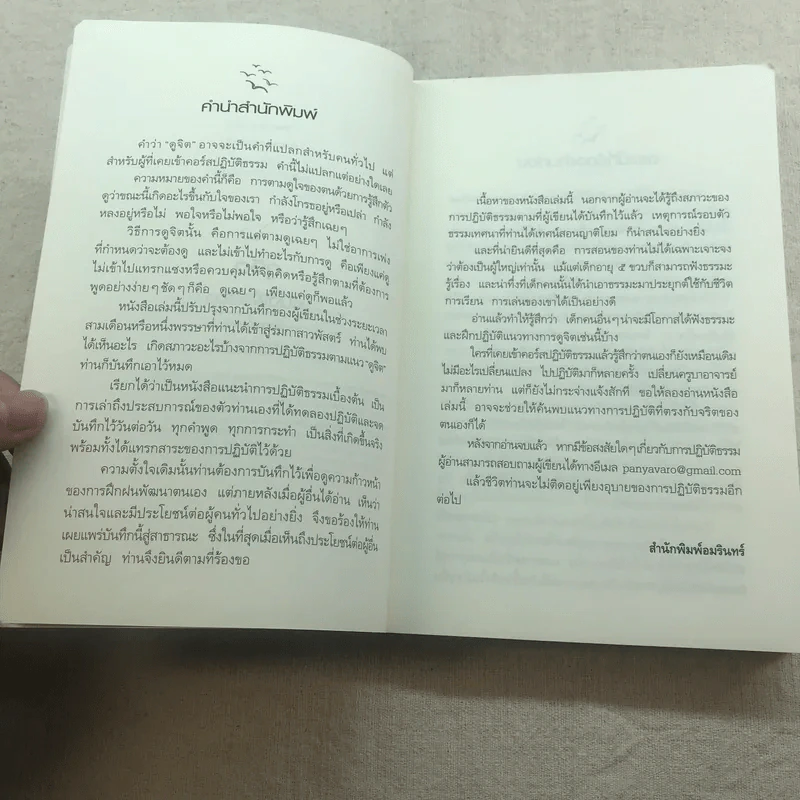 คำนำสำนักพิมพ์
คำว่า “ดูจิต” อาจจะเป็นคำที่แปลกสำหรับคนทั่วไป แต่
สำหรับผู้ที่เคยเข้าคอร์สปฏิบัติธรรม คำนี้ไม่แปลกแต่อย่างใดเลย
ความหมายของคำนี้ก็คือ การตามดูใจของตนด้วยการรู้สึกตัว
ดูว่าขณะนี้เกิดอะไรขึ้นกับใจของเรา กำลังโกรธอยู่หรือเปล่า กำลัง
หลงอยู่หรือไม่ พอใจหรือไม่พอใจ หรือว่ารู้สึกเฉยๆ
วิธีการดูจิตนั้น คือการแค่ตามดูเฉยๆ ไม่ใช่อาการเพ่ง
ที่กำหนดว่าจะต้องดู และไม่เข้าไปทำอะไรกับการดู คือเพียงแค่ดู
ไม่เข้าไปแทรกแซงหรือควบคุมให้จิตคิดหรือรู้สึกตามที่ต้องการ
พูดอย่างง่ายๆ ชัดๆ ก็คือ ดูเฉยๆ เพียงแค่ดูก็พอแล้ว
หนังสือเล่มนี้ปรับปรุงจากบันทึกของผู้เขียนในช่วงระยะเวลา
สามเดือนหรือหนึ่งพรรษาที่ท่านได้เข้าสู่ร่มกาสาวพัสตร์ ท่านได้พบ
ได้เห็นอะไร เกิดสภาวะอะไรบ้างจากการปฏิบัติธรรมตามแนว “ดูจิต”
ท่านก็บันทึกเอาไว้หมด
เรียกได้ว่าเป็นหนังสือแนะนำการปฏิบัติธรรมเบื้องต้น เป็น
การเล่าถึงประสบการณ์ของตัวท่านเองที่ได้ทดลองปฏิบัติและจด
บันทึกไว้วันต่อวัน ทุกคำพูด ทุกการกระทำ เป็นสิ่งที่เกิดขึ้นจริง
พร้อมทั้งได้แทรกสาระของการปฏิบัติไว้ด้วย
ความตั้งใจเดิมนั้นท่านต้องการบันทึกไว้เพื่อดูความก้าวหน้า
ของการฝึกฝนพัฒนาตนเอง แต่ภายหลังเมื่อผู้อื่นได้อ่าน เห็นว่า
น่าสนใจและมีประโยชน์ต่อผู้คนทั่วไปอย่างยิ่ง จึงขอร้องให้ท่าน
เผยแพร่บันทึกนี้สู่สาธารณะ ซึ่งในที่สุดเมื่อเห็นถึงประโยชน์ต่อผู้อื่น
เป็นสำคัญ ท่านจึงยินดีตามที่ร้องขอ
เนื้อหาของหนังสือเล่มนี้ นอกจากผู้อ่านจะได้รู้ถึงสภาวะของ
การปฏิบัติธรรมตามที่ผู้เขียนได้บันทึกไว้แล้ว เหตุการณ์รอบตัว
ธรรมเทศนาที่ท่านได้เทศน์สอนญาติโยม ก็น่าสนใจอย่างยิ่ง
และที่น่ายินดีที่สุดคือ การสอนของท่านไม่ได้เฉพาะเจาะจง
ว่าต้องเป็นผู้ใหญ่เท่านั้น แม้แต่เด็กอายุ ๕ ขวบก็สามารถฟังธรรมะ
รู้เรื่อง และน่าทึ่งที่เด็กคนนั้นได้นำเอาธรรมะมาประยุกต์ใช้กับชีวิต
การเรียน การเล่นของเขาได้เป็นอย่างดี
อ่านแล้วทำให้รู้สึกว่า เด็กคนอื่นๆ น่าจะมีโอกาสได้ฟังธรรมะ
และฝึกปฏิบัติแนวทางการดูจิตเช่นนี้บ้าง
ใครที่เคยเข้าคอร์สปฏิบัติธรรมแล้วรู้สึกว่าตนเองก็ยังเหมือนเดิม
ไม่มีอะไรเปลี่ยนแปลง ไปปฏิบัติมาก็หลายครั้ง เปลี่ยนครูบาอาจารย์
มาก็หลายท่าน แต่ก็ยังไม่กระจ่างแจ้งสักที ขอให้ลองอ่านหนังสือ
เล่มนี้ อาจจะช่วยให้ค้นพบแนวทางการปฏิบัติที่ตรงกับจริตของ
ตนเองก็ได้
หลังจากอ่านจบแล้ว หากมีข้อสงสัยใดๆ เกี่ยวกับการปฏิบัติธรรม
ผู้อ่านสามารถสอบถามผู้เขียนได้ทางอีเมล panyavaro@gmail.com
แล้วชีวิตท่านจะไม่ติดอยู่เพียงอุบายของการปฏิบัติธรรมอีก
ต่อไป
สำนักพิมพ์อมรินทร์